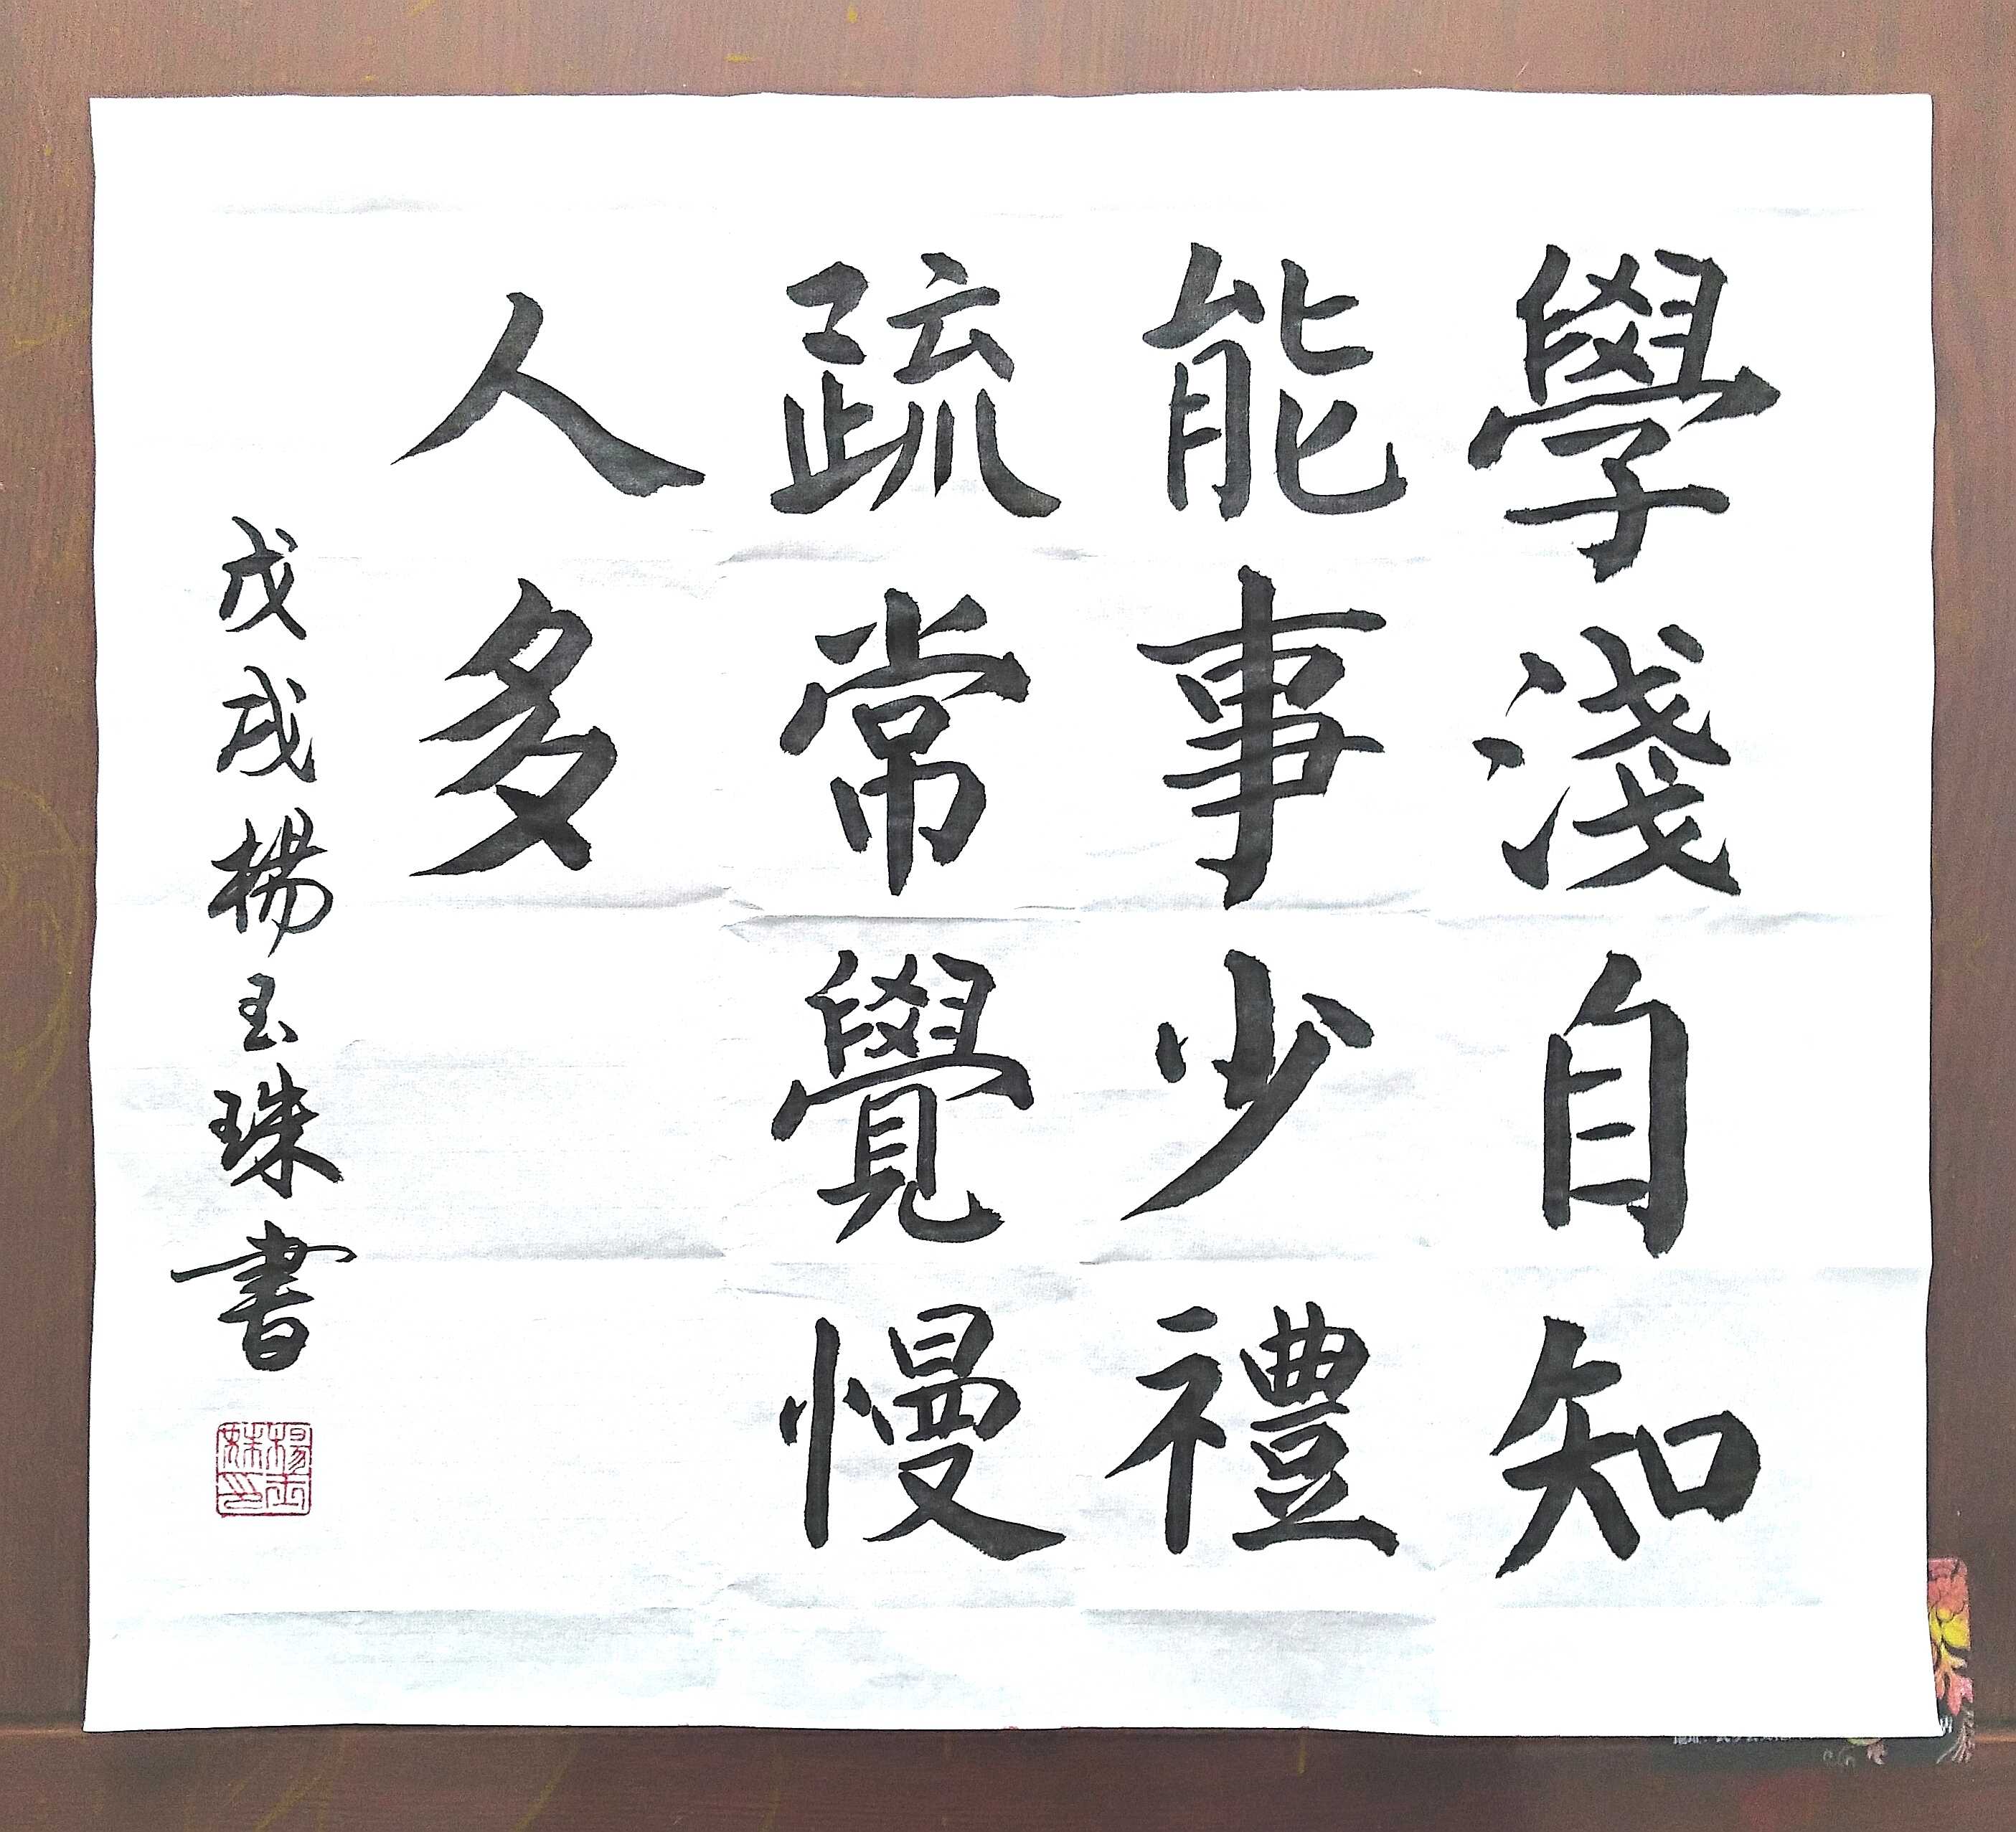 學淺自知
能事少禮
疏常覺慢
人多
戊戌楊玉珠書
楊玉珠印